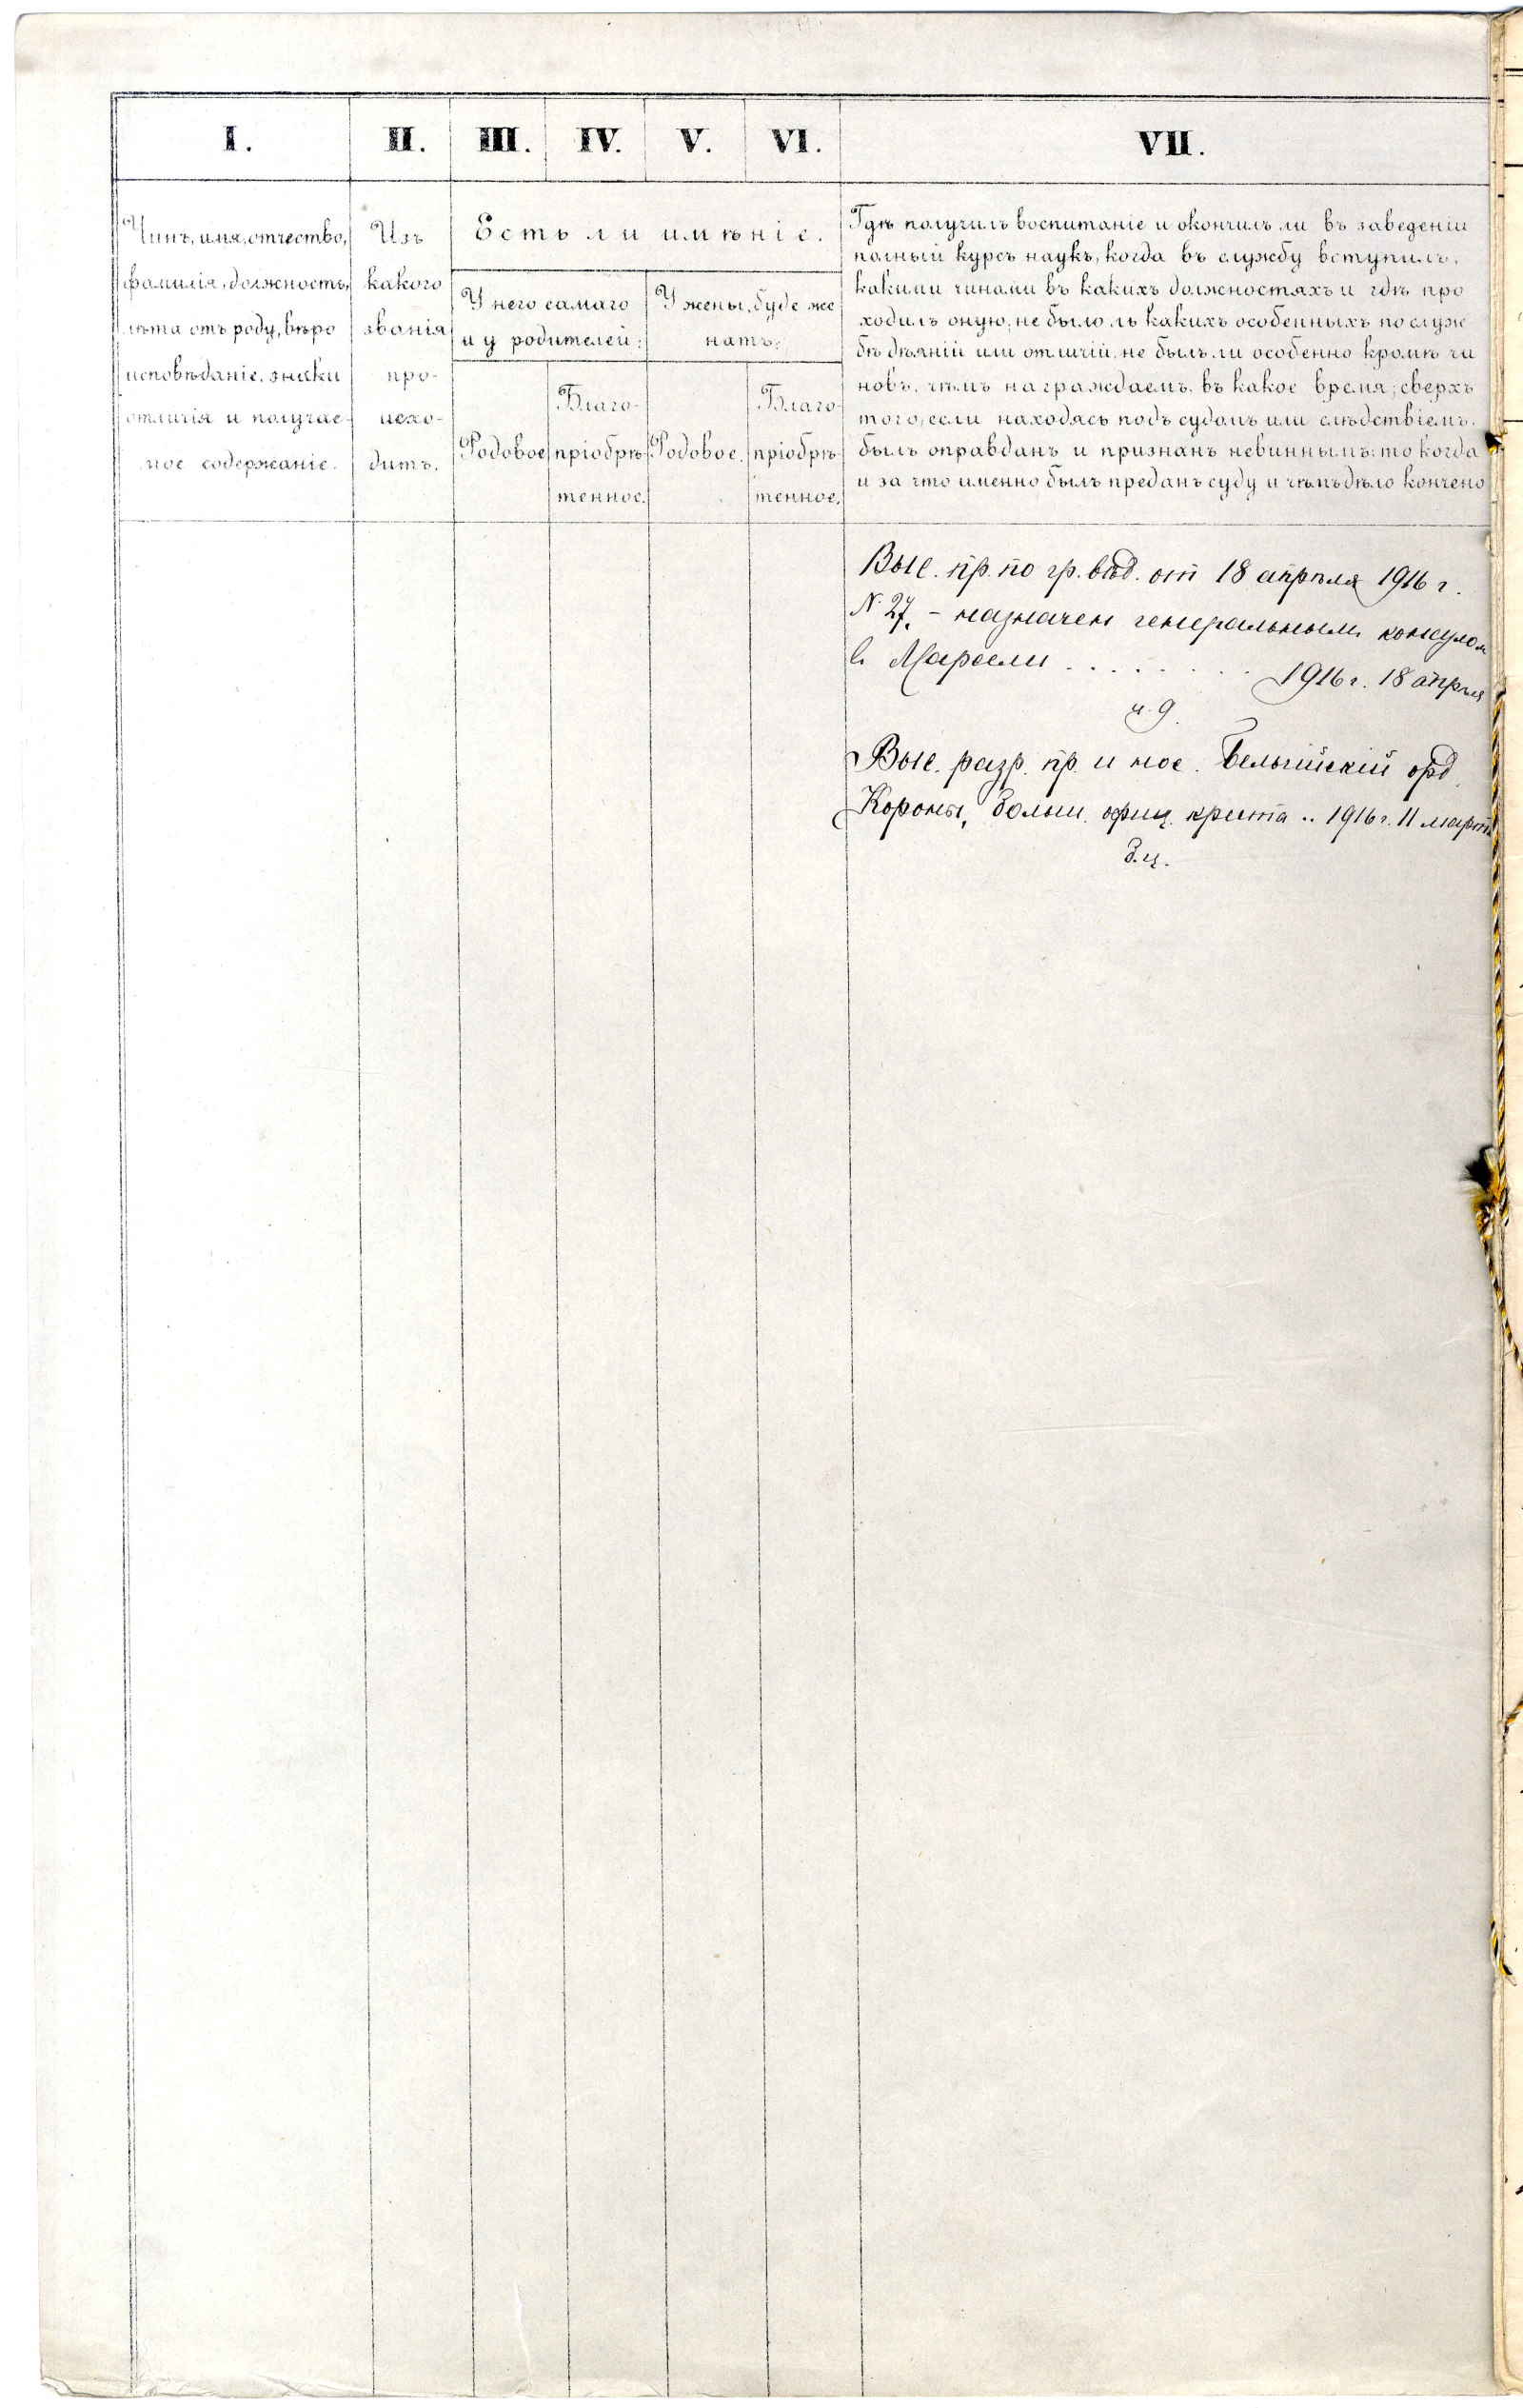 I.
II.
III.
IV.
V.
VI.
VII.
Чинъ, имя, отчество,
фамилія, должность,
лѣта отъ роду, вѣро
исповѣданіе, знаки
отличія и получае-
мое содержаніе.
Изъ
какого
званія
про-
исхо-
дитъ.
Есть ли имѣніе.
У него самаго
и у родителей:
У жены, буде же
натъ:
Родовое
Благо-
пріобрѣ-
тенное.
Родовое.
Благо-
пріобрѣ-
тенное.
Гдѣ получилъ воспитаніе и окончилъ ли въ заведеніи
полный курсъ наукъ, когда въ службу вступилъ,
какими чинами въ какихъ должностяхъ и гдѣ про
ходилъ оную, не было ль какихъ особенныхъ по служ
бѣ дѣяній или отличій, не былъ ли особенно кромѣ чи
новъ, чѣмъ награждаемъ, въ какое время; сверхъ
того, если находясь подъ судомъ или слѣдствіемъ,
былъ оправданъ и признанъ невиннымъ; то когда
и за что именно былъ преданъ суду и чѣмъ дѣло кончено
Выс. пр. по гр. вѣд. от 18 апрѣля 1916 г.
№ 27. – назначен генеральным консулом
в Марсели . . . . . . 1916 г. 18 апрѣля
Выс. разр. пр. и нос. Бельгійскій орд.
Короны, больш. офиц. креста .. 1916 г. 11 марта